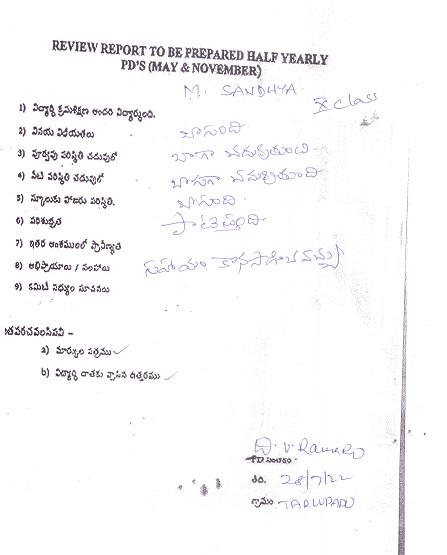 REVIEW REPORT TO BE PREPARED HALF YEARLY
PD'S (MAY & NOVEMBER)
M. SANDHYA.
X class
1) విద్యార్థి క్రమశిక్షణ అందరి విద్యార్థులది.
2) వినయ విధేయతలు బాగుంది
3) పూర్వపు పరిస్థితి చదువులో బాగా చదువుతుంది
4) నేటి పరిస్థితి చదువులో బాగా చదువుతుంది
5) స్కూలుకు హాజరు పరిస్థితి. బాగుంది.
6) పరిశుభ్రత పాటిస్తుంది
7) ఇతర అంశములలో ప్రావీణ్యత
8) అభిప్రాయాలు / సలహాలు సహాయం కొనసాగించవచ్చు
9) కమిటీ సభ్యుల సూచనలు
తపరచవలసినవి -
a) మార్కుల పత్రము ✓
b) విద్యార్థి దాతకు వ్రాసిన ఉత్తరము ✓
D. V. Ramarao
PD సంతకం -
తేది. 28/7/22
గ్రామం TARLUPADU